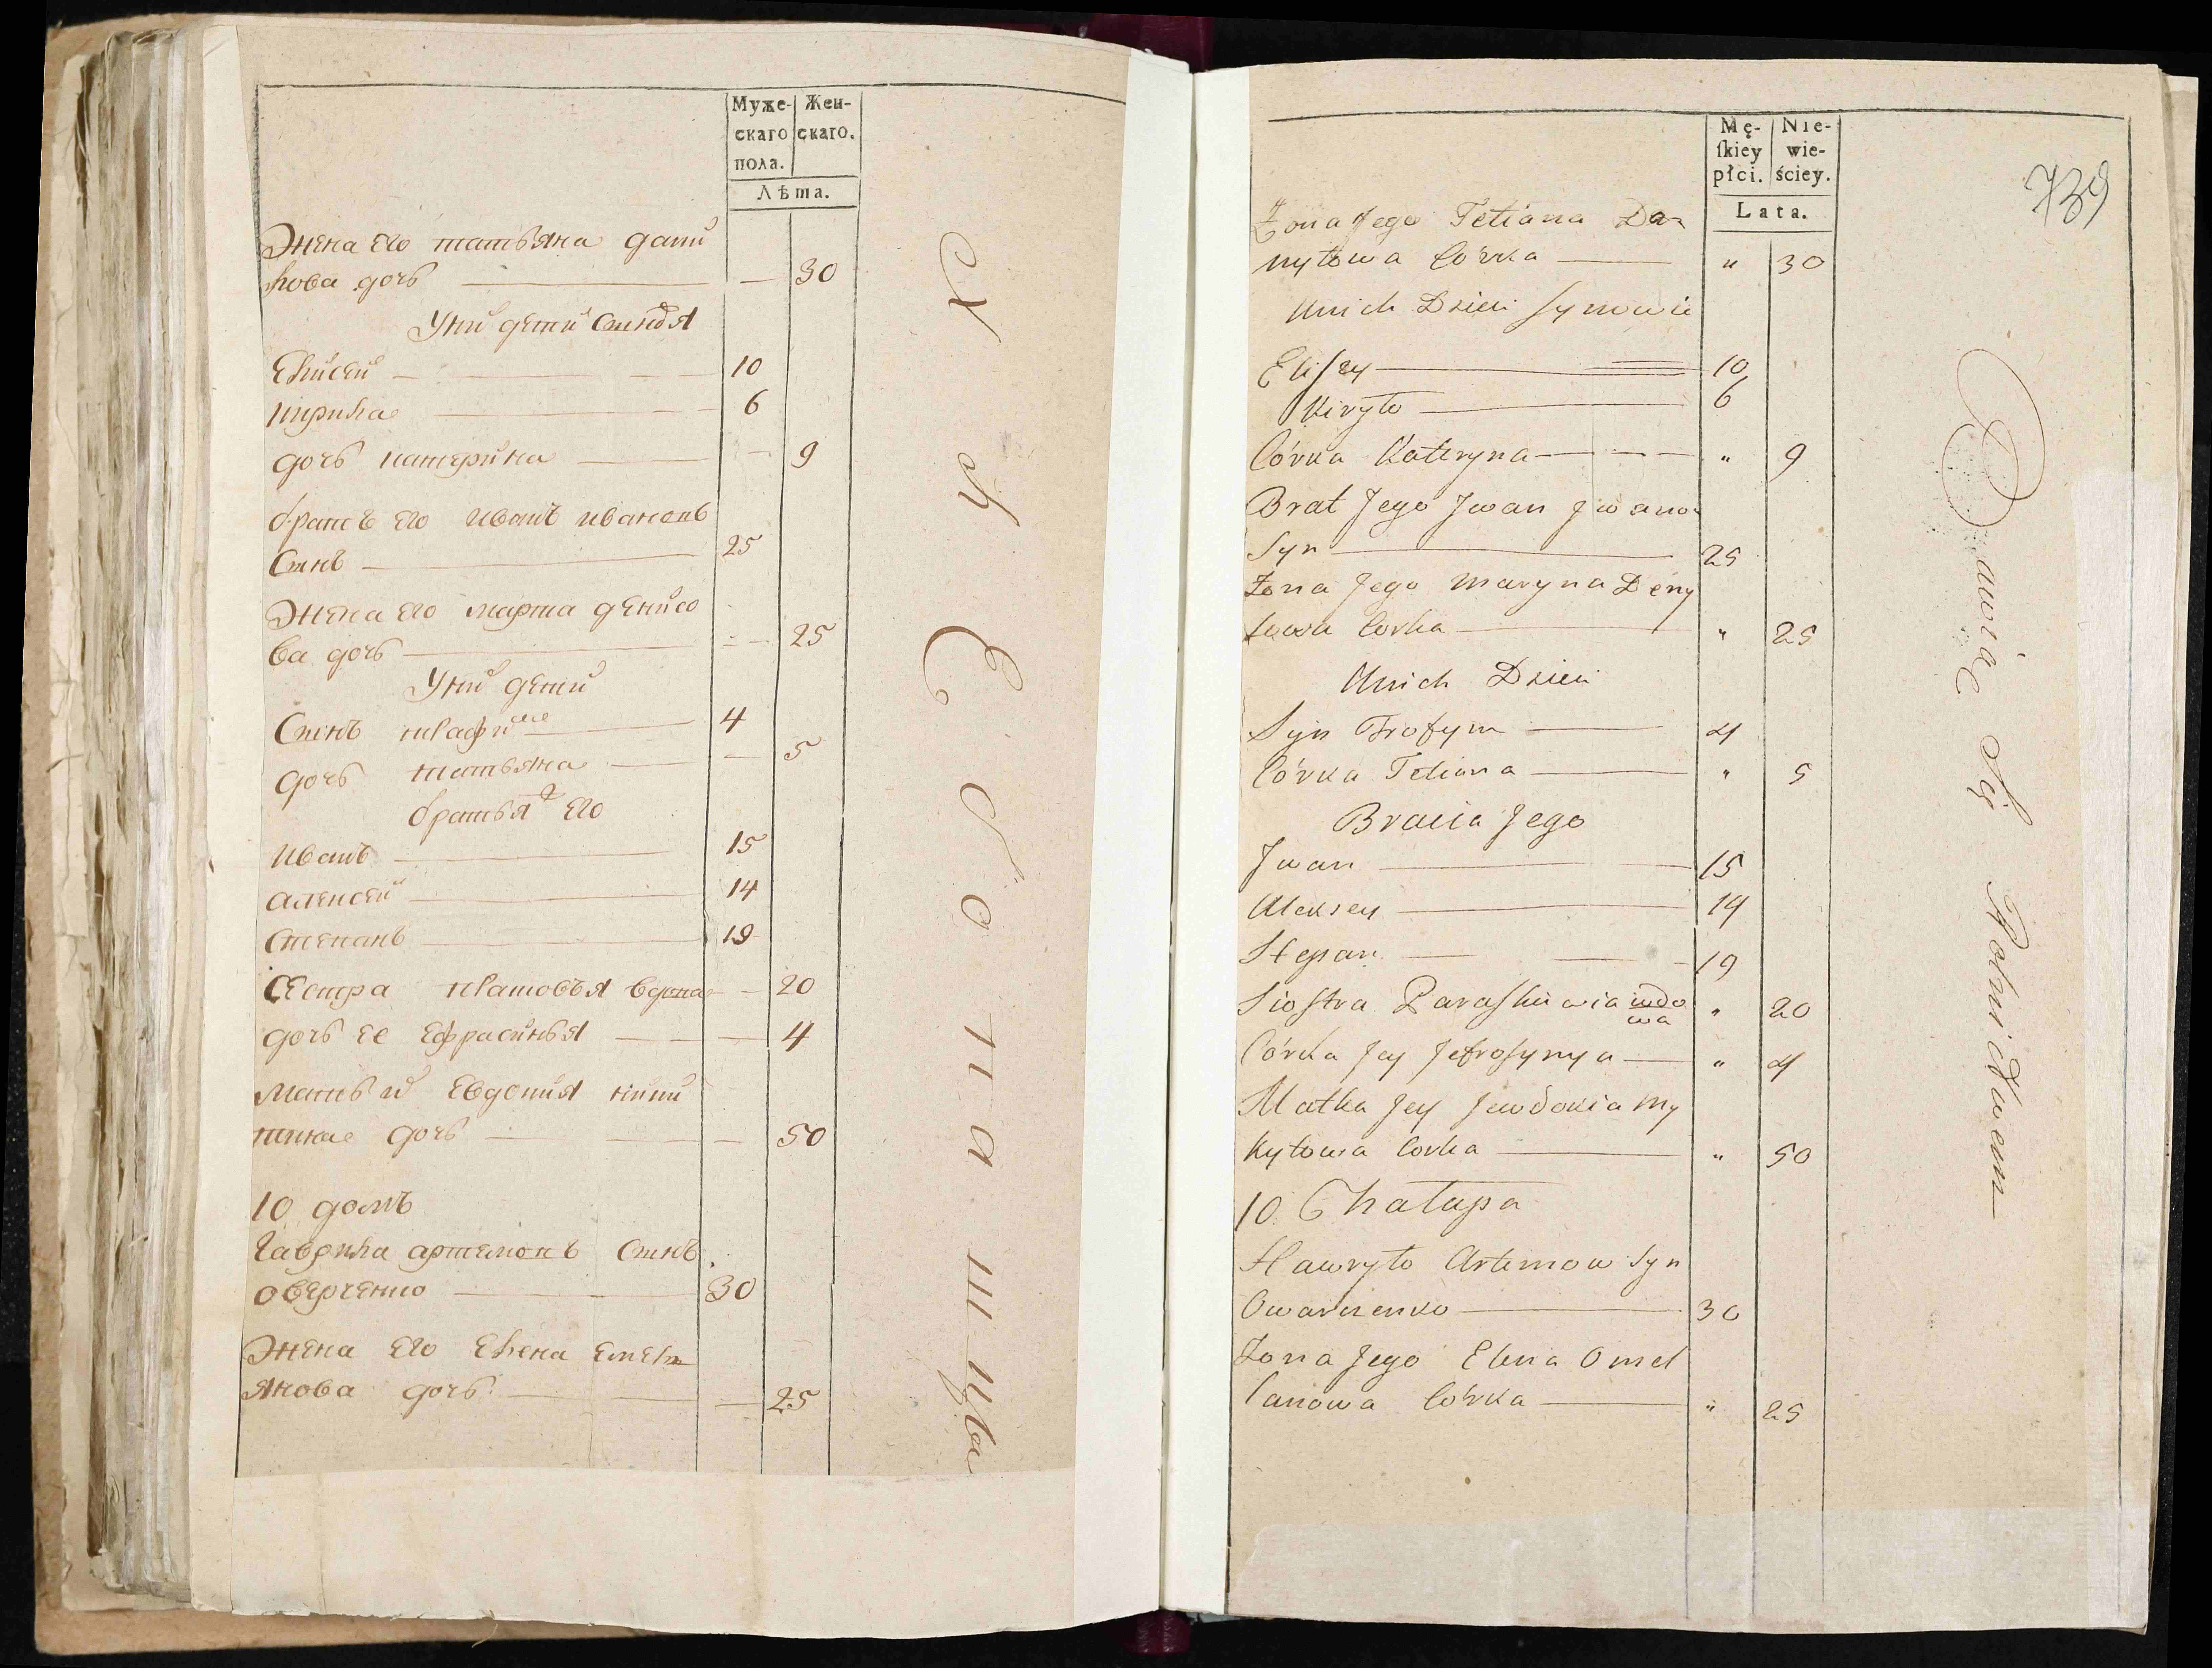 Муже-
скаго
пола.
Жен-
скаго.
Лѣта.
Жена его татьяна дани
лова дочь — 30
У ни дети Сыновя
Елисеи 10
кирила 6
дочь катерина — 9
братъ его иванъ ивановъ
Сынъ 25
Жена его марта дениso
ва дочь — 25
У ни дети
Сынъ 4
дочь татьяна — 5
братья его
иванъ 15
алексеи 14
Степанъ 19
Сестра вдова — 20
дочь ее Ефрасинья — 4
мать и Евдокия ники
дочь — 50
10 домъ
гаврила артемовъ Сынъ
оверченко 30
Жена его Елена Емель
янова дочь — 25
Mę-
ſkiey
płci.
Nie-
wie-
ściey.
Lata.
739
Żona Jego Tetiana Da-
nyłowa Córka " 30
Unich Dzieci Synowie
Elisey 10
Kiryło 6
Córka Kateryna " 9
Brat Jego Jwan Jwanow
Syn 25
Żona Jego Maryna Deny
sowa Corka " 25
Unich Dzieci
Syn Trofym 4
Córka Tetiana " 5
Bracia Jego
Jwan 15
Aleksey 14
Stepan 19
Siostra Paraskiewia wdo
wa " 20
Córka Jey Jefrosynya " 4
Matka Jey Jewdokia My
kytowa Corka " 50
10. Chałupa
Hawryło Artemow Syn
Owarczenko 30
Żona Jego Elena Omel
lanowa Córka " 25
Bawiąc Się Rolnictwem